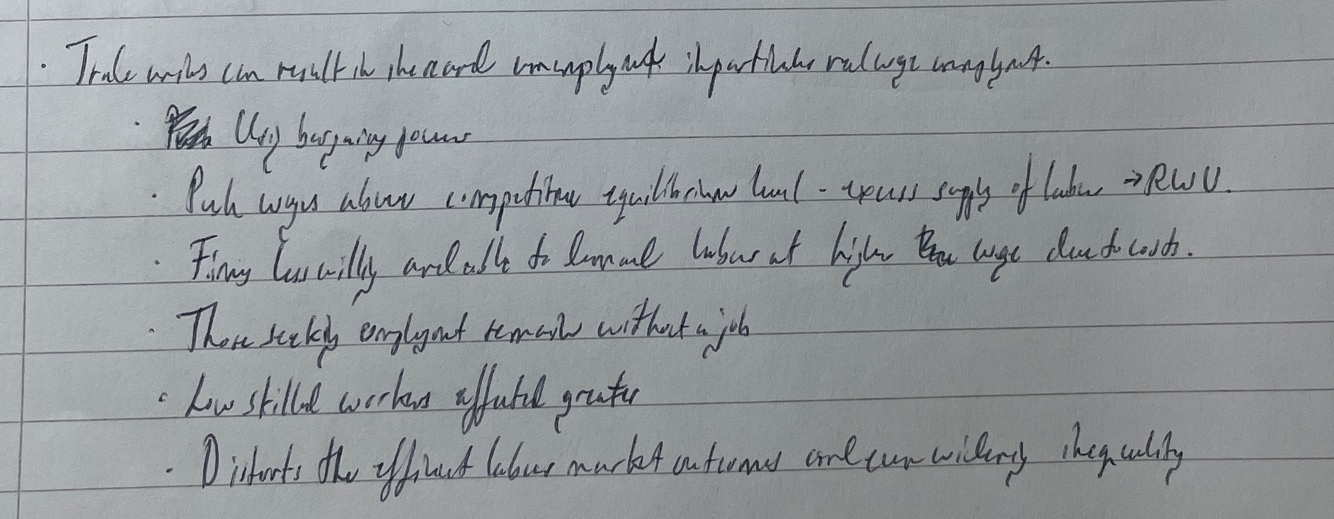 · Trade unions can result in increased unemployment in particular real wage unemployment.
· Using bargaining power
· Push wages above competitive equilibrium level - excess supply of labour → RWU.
· Firms less willing and able to demand labour at higher wage due to costs.
· Those seeking employment remain without a job
· Low skilled workers affected greater
· Distorts the efficient labour market outcomes and can widening inequality